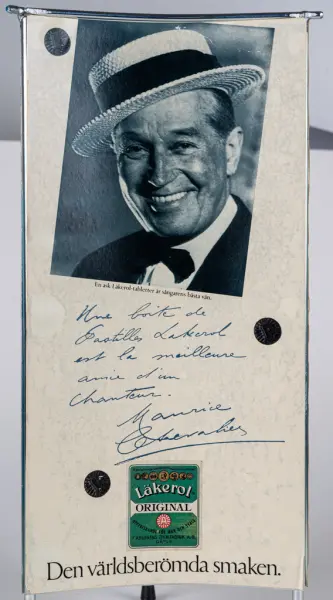 En ask Läkerol-tabletter är sångarens bästa vän.
Une boîte de
Pastilles Lakerol
est la meilleure
amie d'un
chanteur.
Maurice
Chevalier
Läkerol
ORIGINAL
Den världsberömda smaken.